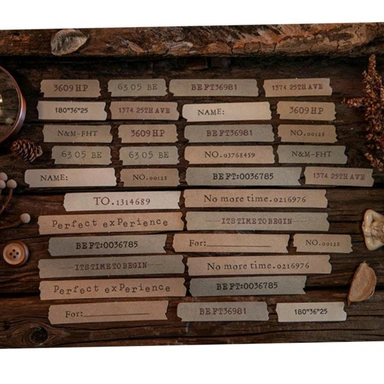 3609 HP
63 05 BE
BEFT36981
1374 25TH AVE
180°36"25
1374 25TH AVE
NAME:
3609 HP
N&M-FHT
3609 HP
BEFT36981
NO.00125
63 05 BE
63 05 BE
NO.03768459
N&M-FHT
NAME:
NO.00125
BEFT:0036785
1374 25TH AVE
TO.1314689
No more time.0216976
Perfect exPerience
ITS TIME TO BEGIN
BEFT:0036785
For:
NO.00125
ITS TIME TO BEGIN
No more time.0216976
Perfect exPerience
BEFT:0036785
For:
BEFT36981
180°36"25